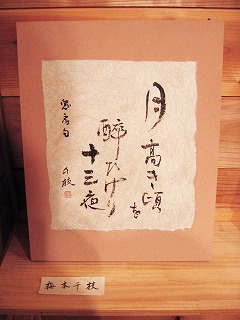 月高き頃を
酔ひけり
十三夜
千枝
梅本千枝